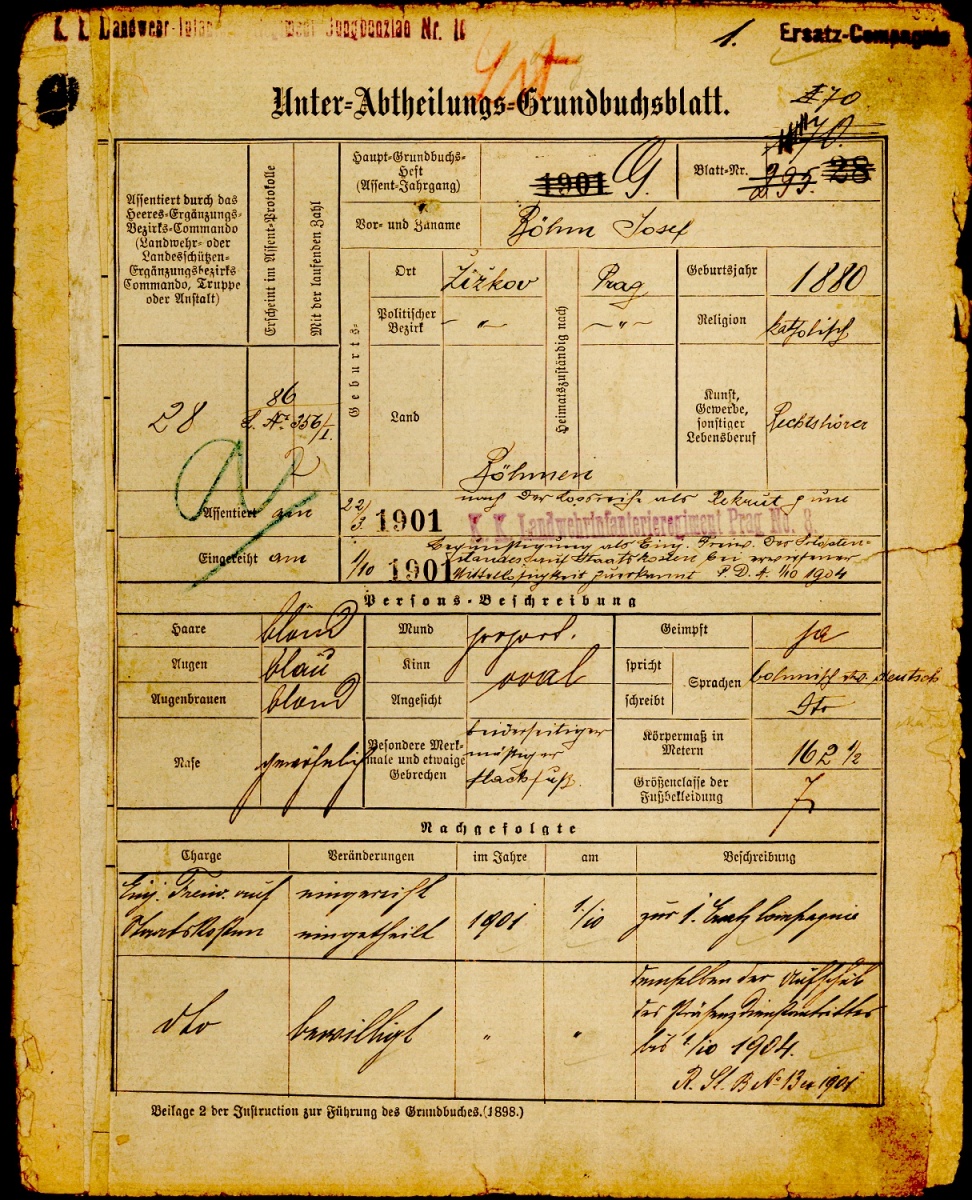 K. k. Landwehr-Infanterie-Regiment Jungbunzlau Nr. 10
1. Ersatz-Compagnie
Unter-Abtheilungs-Grundbuchsblatt.
Assentiert durch das
Heeres-Ergänzungs-
Bezirks-Commando
(Landwehr- oder
Landesschützen-
Ergänzungsbezirks
Commando, Truppe
oder Anstalt)
Erscheint im Assent-Protokolle
Mit der laufenden Zahl
Haupt-Grundbuchs-
Heft
(Assent-Jahrgang)
1901 G.
Blatt-Nr.
70
295. 28
Vor- und Zuname
Böhm Josef
Geburts-
Ort
Žižkov
Heimatszuständig nach
Prag
Geburtsjahr
1880
Politischer
Bezirk
- „ -
- „ -
Religion
katholisch
Land
Böhmen
Kunst,
Gewerbe,
sonstiger
Lebensberuf
Rechtshörer
28
86
356/I.
2
Assentiert am
22/3. 1901
nach der Losreihe als Rekrut zum
K. K. Landwehrinfanterieregiment Prag No. 8.
Eingereiht am
1/10 1901
Begünstigung als Einj. Freiw. des Soldaten-
standes auf Staatskosten bei erwiesener
Mittellosigkeit zuerkannt P. D. A. 1/10 1904
Persons-Beschreibung
Haare
blond
Mund
proport.
Geimpft
ja
Augen
blau
Kinn
oval
spricht
Sprachen
böhmisch deutsch
Augenbrauen
blond
Angesicht
schreibt
dto
Nase
gewöhnlich
Besondere Merk-
male und etwaige
Gebrechen
beiderseitiger
mäßiger
Flachfuß.
Körpermaß in
Metern
162 1/2
Größenclasse der
Fußbekleidung
7
Nachgefolgte
Charge
Veränderungen
im Jahre
am
Beschreibung
Einj. Freiw. auf
Staatskosten
eingereiht
eingetheilt
1901
1/10
zur 1. Ersatz Compagnie
dto
bewilligt
"
"
demselben der Aufschub
des Präsenzdienstantrittes
bis 1/10 1904.
R. St. B No 13 ex 1901
Beilage 2 der Instruction zur Führung des Grundbuches.(1898.)